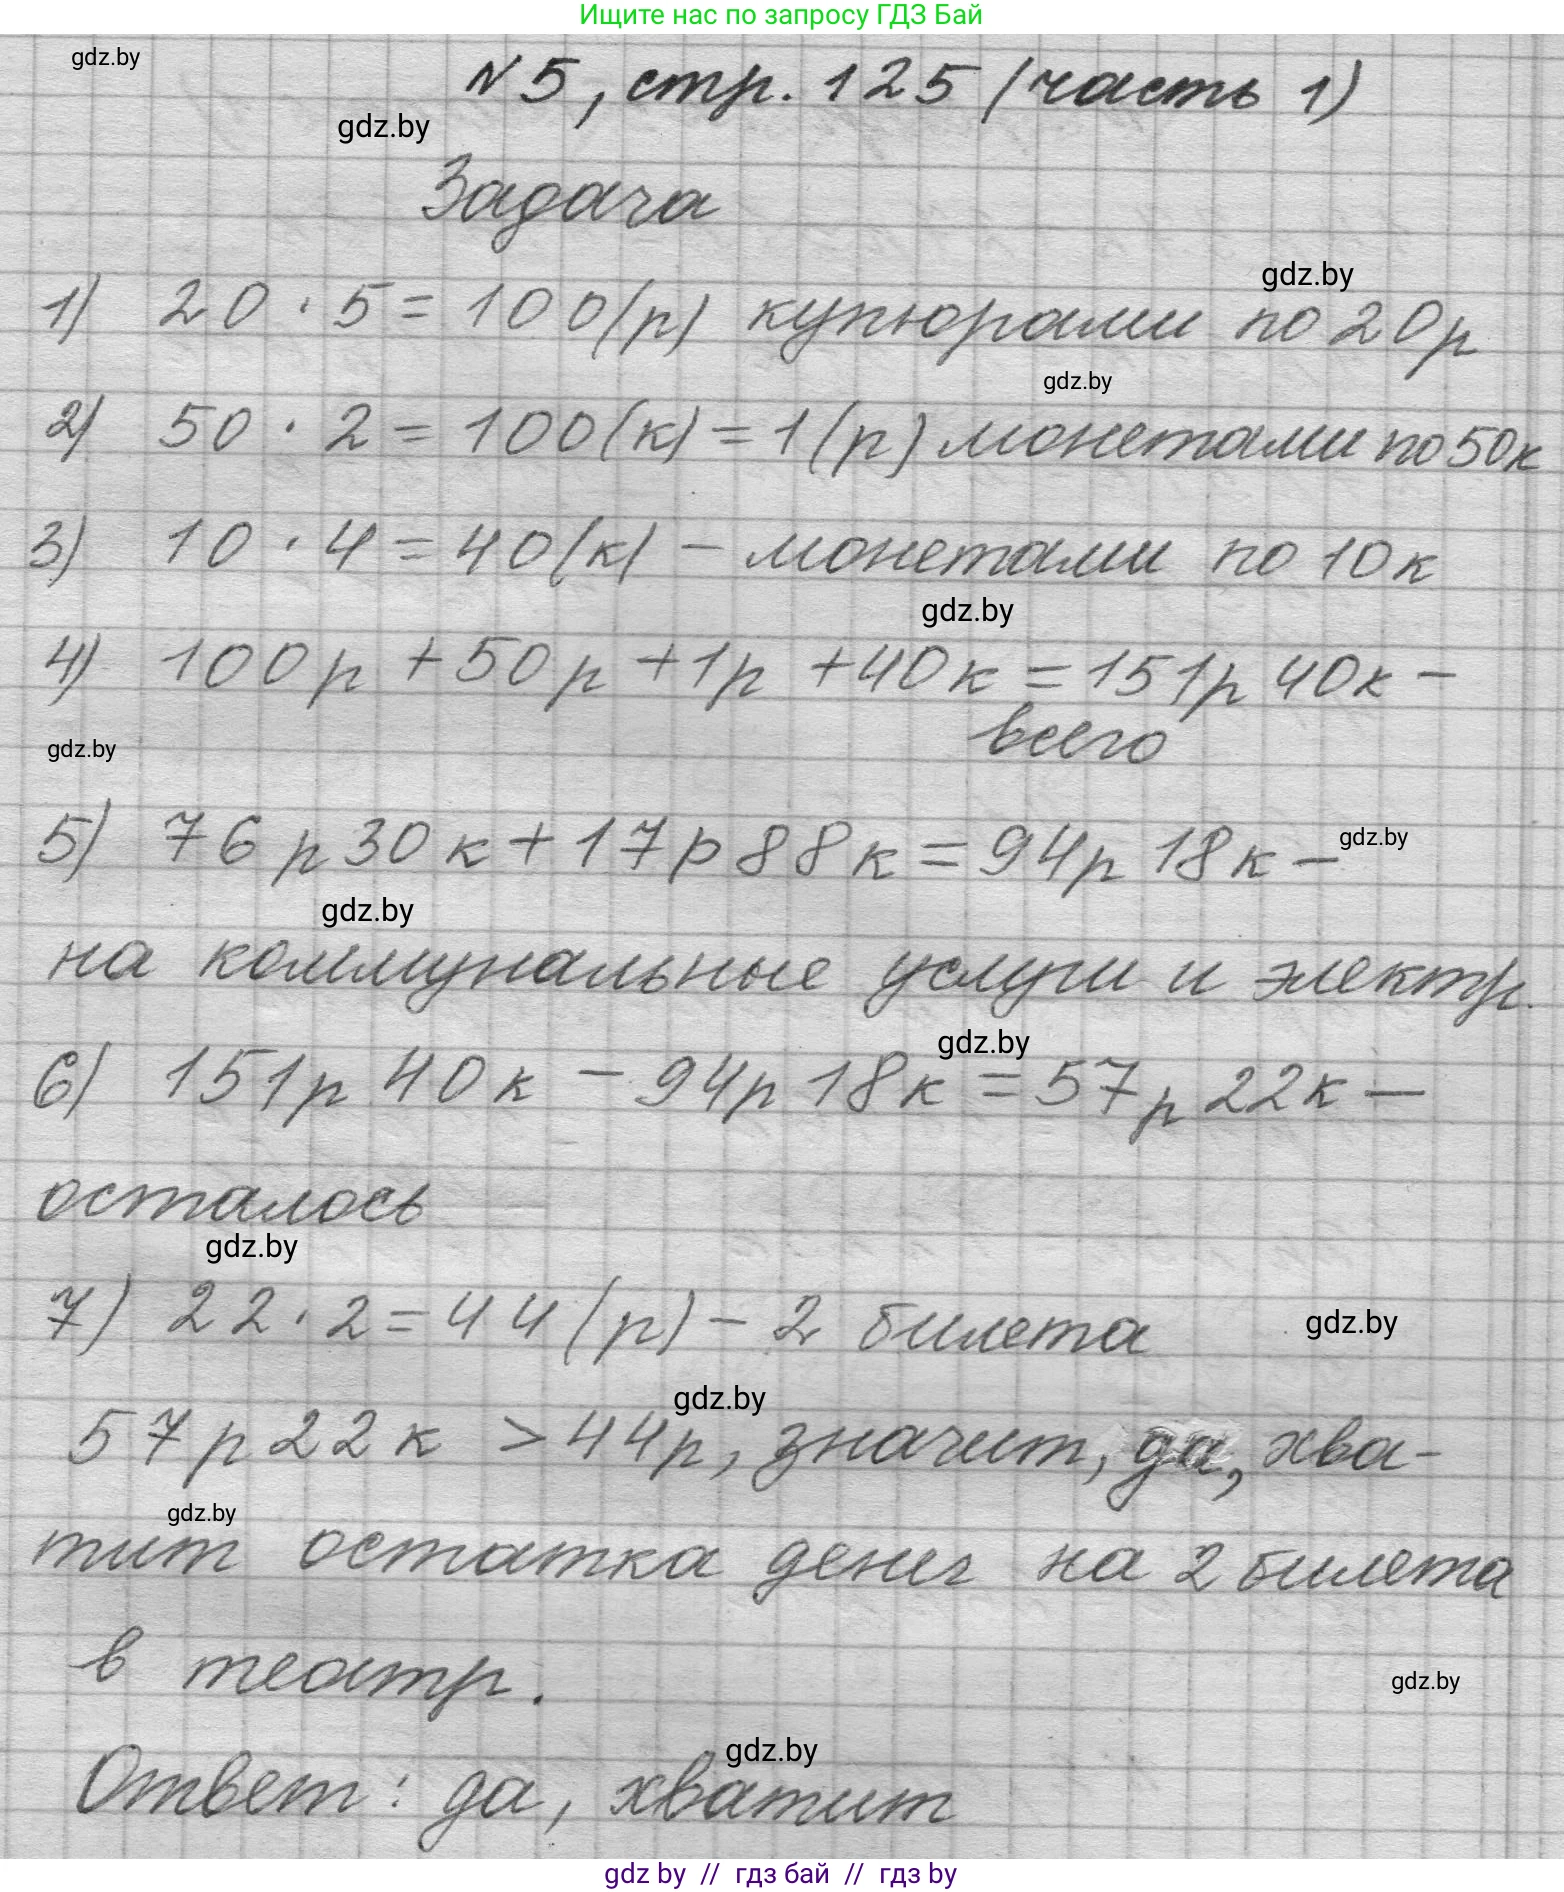 Ищите нас по запросу ГДЗ Бай
gdz.by
№5, стр. 125 (часть 1)
gdz.by
Задача
gdz.by
1) 20 · 5 = 100(р) купюрами по 20р
gdz.by
2) 50 · 2 = 100(к) = 1(р) монетами по 50к
3) 10 · 4 = 40(к) - монетами по 10к
gdz.by
4) 100р + 50р + 1р + 40к = 151р 40к -
всего
gdz.by
5) 76р 30к + 17р 88к = 94р 18к -
gdz.by
gdz.by
на коммунальные услуги и электр.
gdz.by
6) 151р 40к - 94р 18к = 57р 22к -
осталось
gdz.by
7) 22 · 2 = 44(р) - 2 билета
gdz.by
gdz.by
57р 22к > 44р, значит, да, хва-
gdz.by
тит остатка денег на 2 билета
в театр.
gdz.by
gdz.by
Ответ: да, хватит
gdz by // гдз бай // гдз by